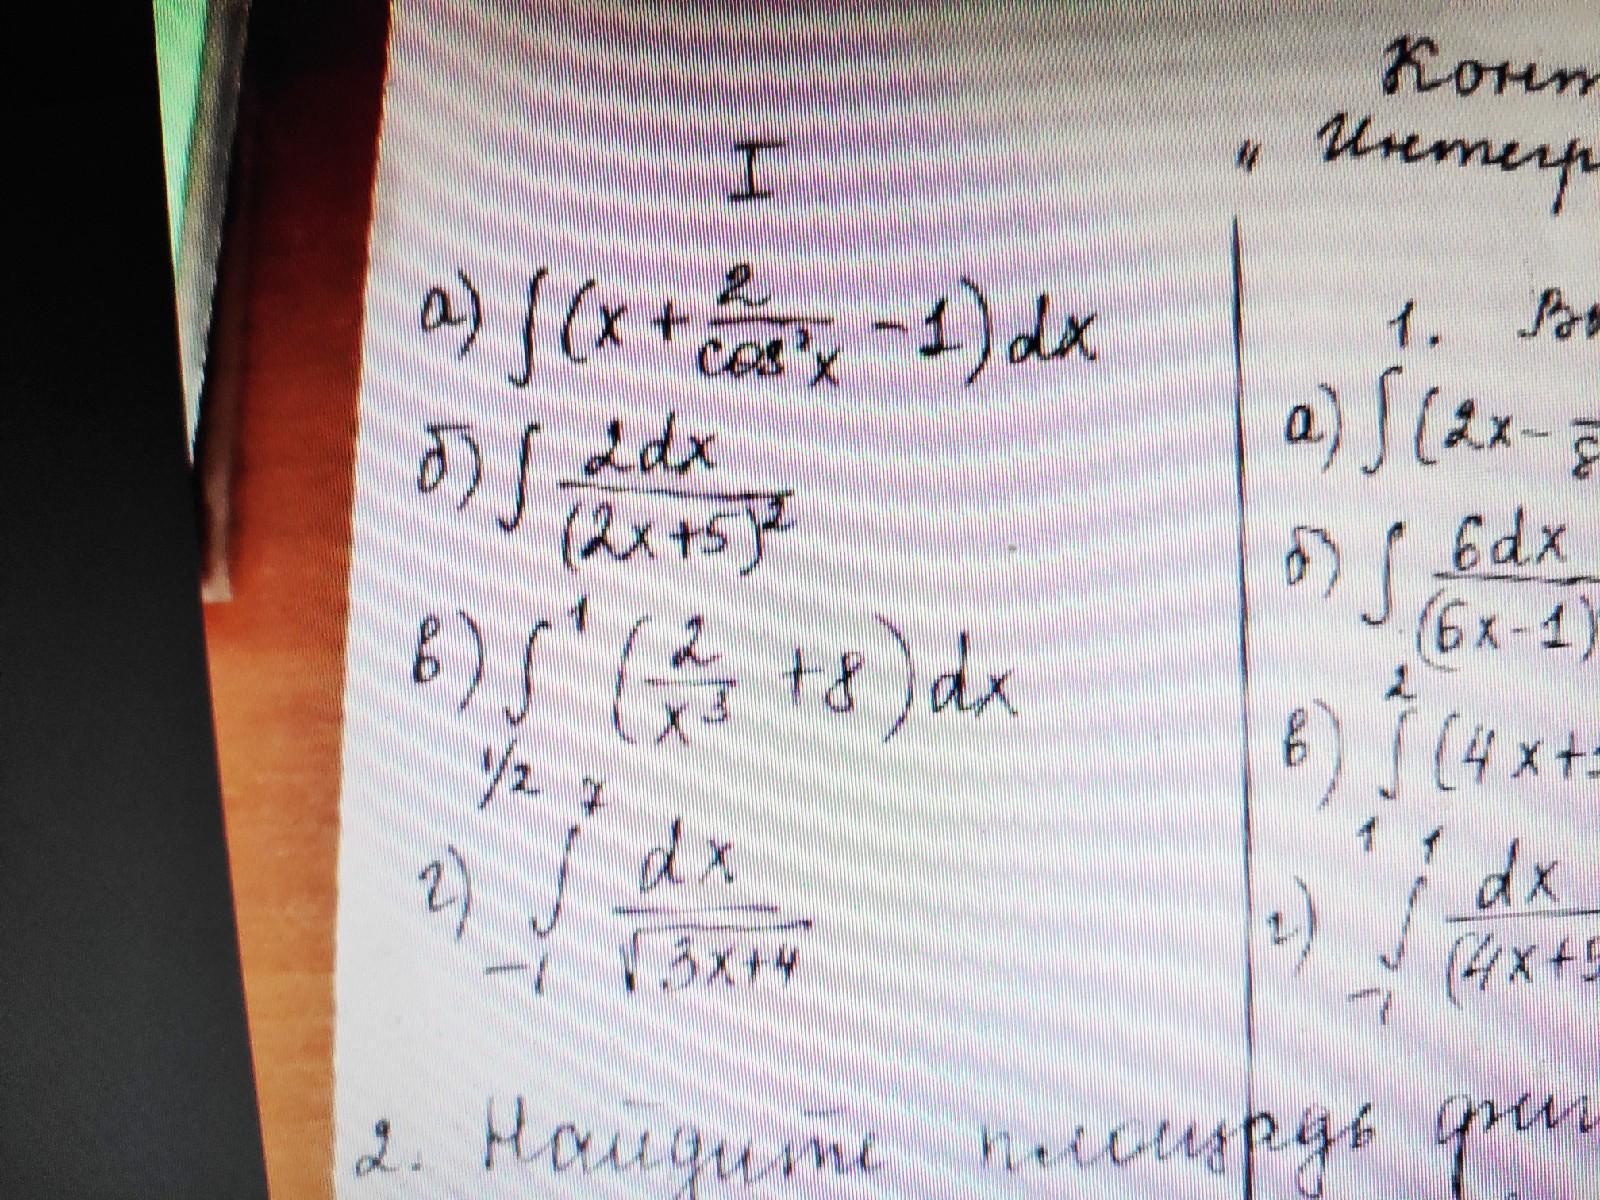 Конт
„ Интегр
I
а) ∫(x + 2/cos²x - 1)dx
б) ∫ 2dx/(2x+5)²
в) ∫¹₁/₂ (2/x³ + 8)dx
г) ∫⁷₋₁ dx/√3x+4
1.
а) ∫(2x-
б) ∫ 6dx/(6x-1)
в) ∫²₁ (4x+
г) ∫¹₋₁ dx/(4x+5
2. Найдите площадь фиг